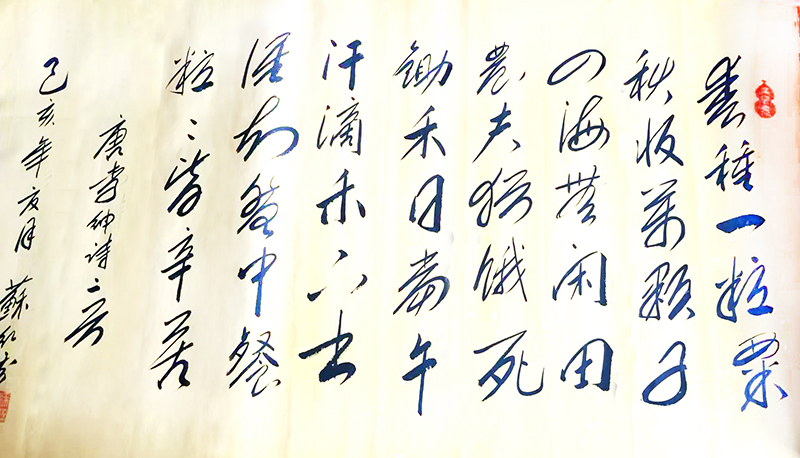 春種一粒粟
秋收萬顆子
四海無闲田
農夫猶餓死
鋤禾日當午
汗滴禾下土
誰知盤中餐
粒〻皆辛苦
唐李紳诗二首
己亥年亥月 蘇